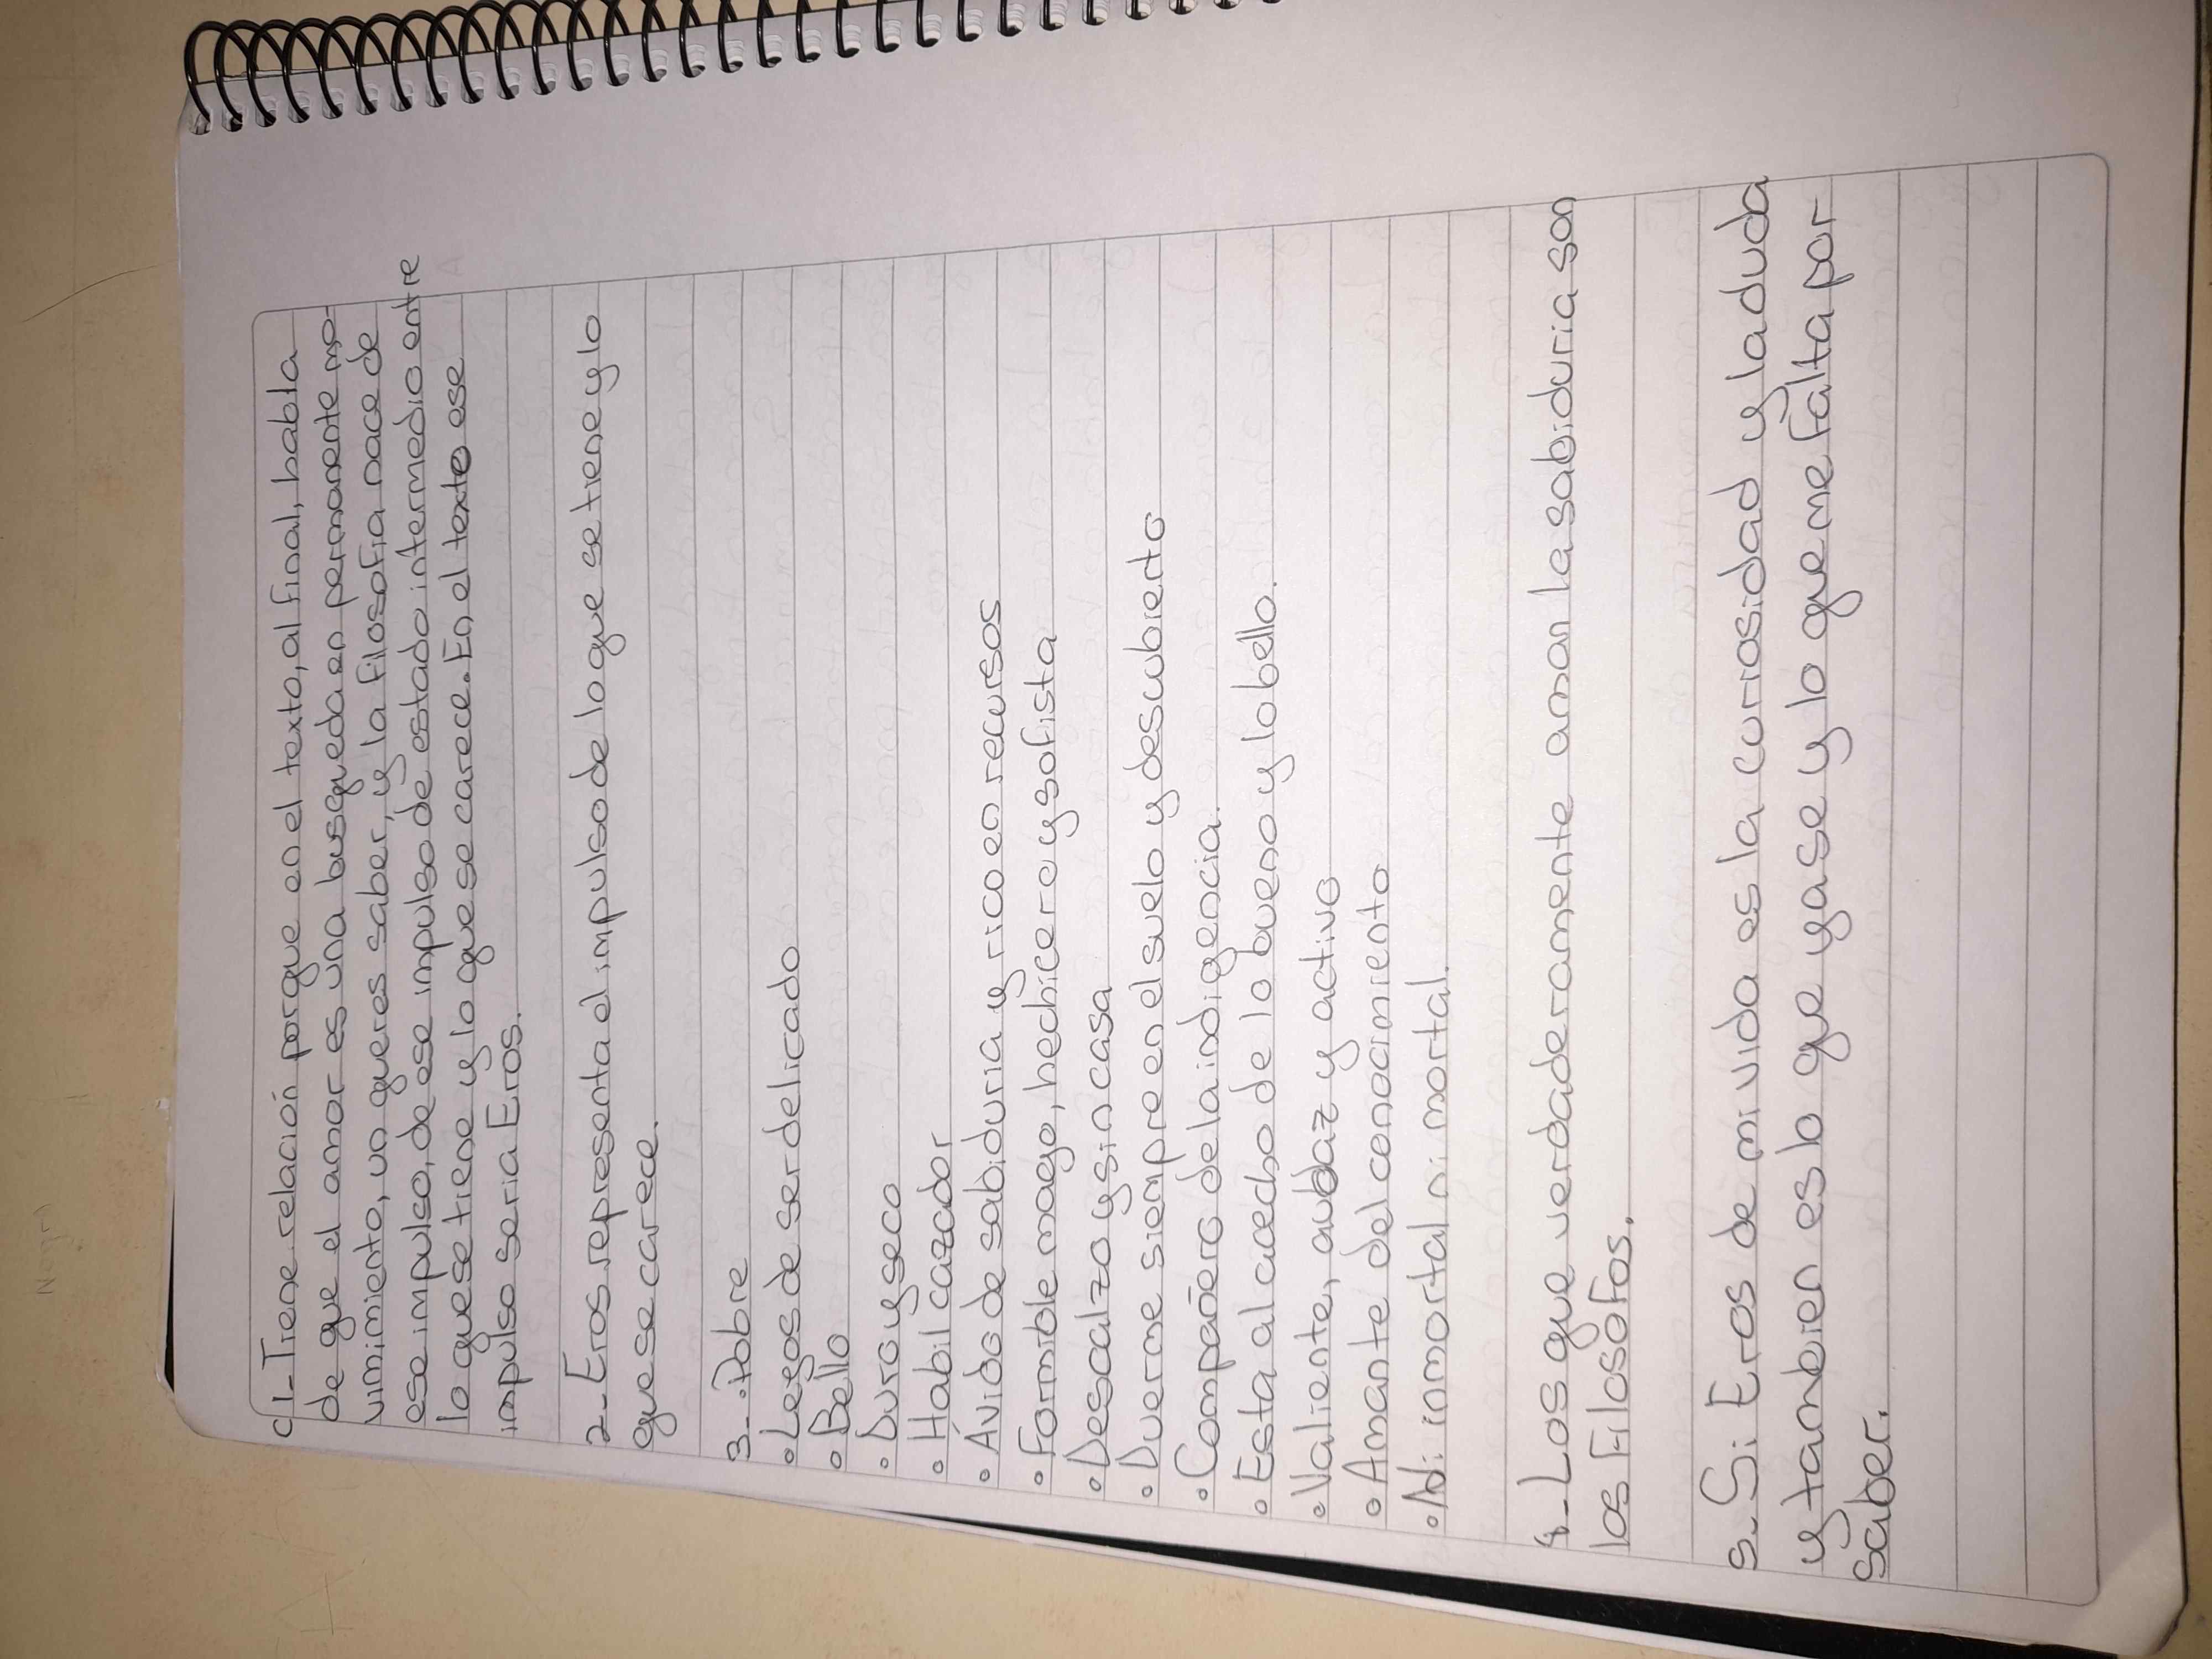 C1_Tiene relación porque en el texto, al final, habla
de que el amor es una busqueda en permanente mo-
vimiento, un queres saber, y la filosofia nace de
ese impulso, de ese impulso de estado intermedio entre
lo que se tiene y lo que se carece. En el texto ese
impulso seria Eros.
2_Eros representa el impulso de lo que se tiene y lo
que se carece.
3_ • Pobre
• Legos de ser delicado
• Bello
• Duro y seco
• Habil cazador
• Ávido de sabiduria y rico en recursos
• Formible mago, hechicero y sofista
• Descalzo y sin casa
• Duerme siempre en el suelo y descubierto
• Compañero de la indigencia.
• Esta al acecho de lo bueno y lo bello.
• Valiente, audaz y activo
• Amante del conocimiento
• Ni inmortal ni mortal.
4_Los que verdaderamente aman la sabiduria son
los Filosofos.
5_Si Eros de mi vida es la curiosidad y la duda
y tambien es lo que ya se y lo que me falta por
saber.